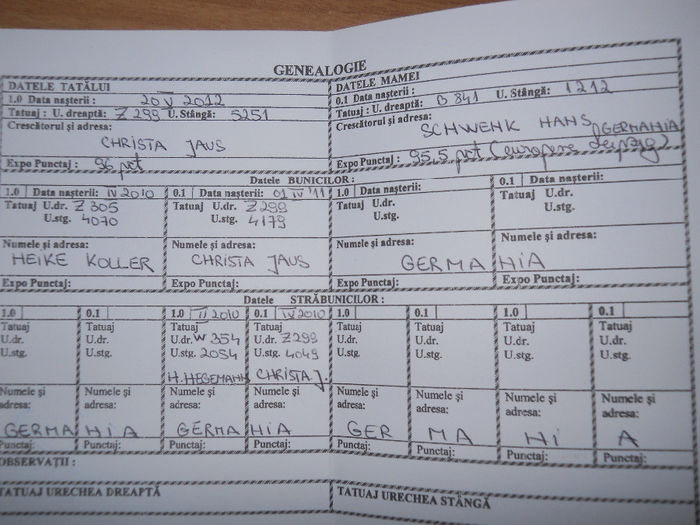 GENEALOGIE
DATELE TATĂLUI
1.0 Data nașterii : 20 V 2012
Tatuaj : U. dreaptă: Z 299 U.Stângă: 5251
Crescătorul și adresa:
CHRISTA JAUS
Expo Punctaj : 96 pct
DATELE MAMEI
0.1 Data nașterii :
Tatuaj : U. dreaptă: B 841 U. Stângă: 1212
Crescătorul și adresa:
SCHWENK HANS, GERMANIA
Expo Punctaj : 95.5 pct (europene leipzig)
Datele BUNICILOR:
1.0 Data nașterii: IV 2010
Tatuaj U.dr. Z 305
U.stg. 4070
Numele și adresa:
HEIKE KOLLER
Expo Punctaj:
0.1 Data nașterii: 01 IV '11
Tatuaj U.dr. Z 299
U.stg. 4179
Numele și adresa:
CHRISTA JAUS
Expo Punctaj:
1.0 Data nașterii:
Tatuaj U.dr:
U.stg.
Numele și adresa:
0.1 Data nașterii:
Tatuaj U.dr.
U.stg.
Numele și adresa:
GERMANIA
Expo Punctaj:
Expo Punctaj:
Datele STRĂBUNICILOR :
1.0 0.1 1.0 II 2010 0.1 IV 2010 1.0 0.1 1.0 0.1
Tatuaj Tatuaj Tatuaj Tatuaj Tatuaj Tatuaj Tatuaj Tatuaj
U.dr. U.dr. U.dr. W 354 U.dr. Z299 U.dr. U.dr. U.dr. U.dr.
U.stg. U.stg. U.stg. 2054 U.stg. 4049 U.stg. U.stg. U.stg. U.stg.
H. HEGEMANN CHRISTA J.
Numele și Numele și Numele și Numele și Numele și Numele și Numele și Numele și
adresa: adresa: adresa: adresa: adresa: adresa: adresa: adresa:
GERMANIA GERMANIA GER MA NI A
Punctaj: Punctaj: Punctaj: Punctaj: Punctaj: Punctaj: Punctaj: Punctaj:
OBSERVAȚII :
TATUAJ URECHEA DREAPTĂ
TATUAJ URECHEA STÂNGĂ